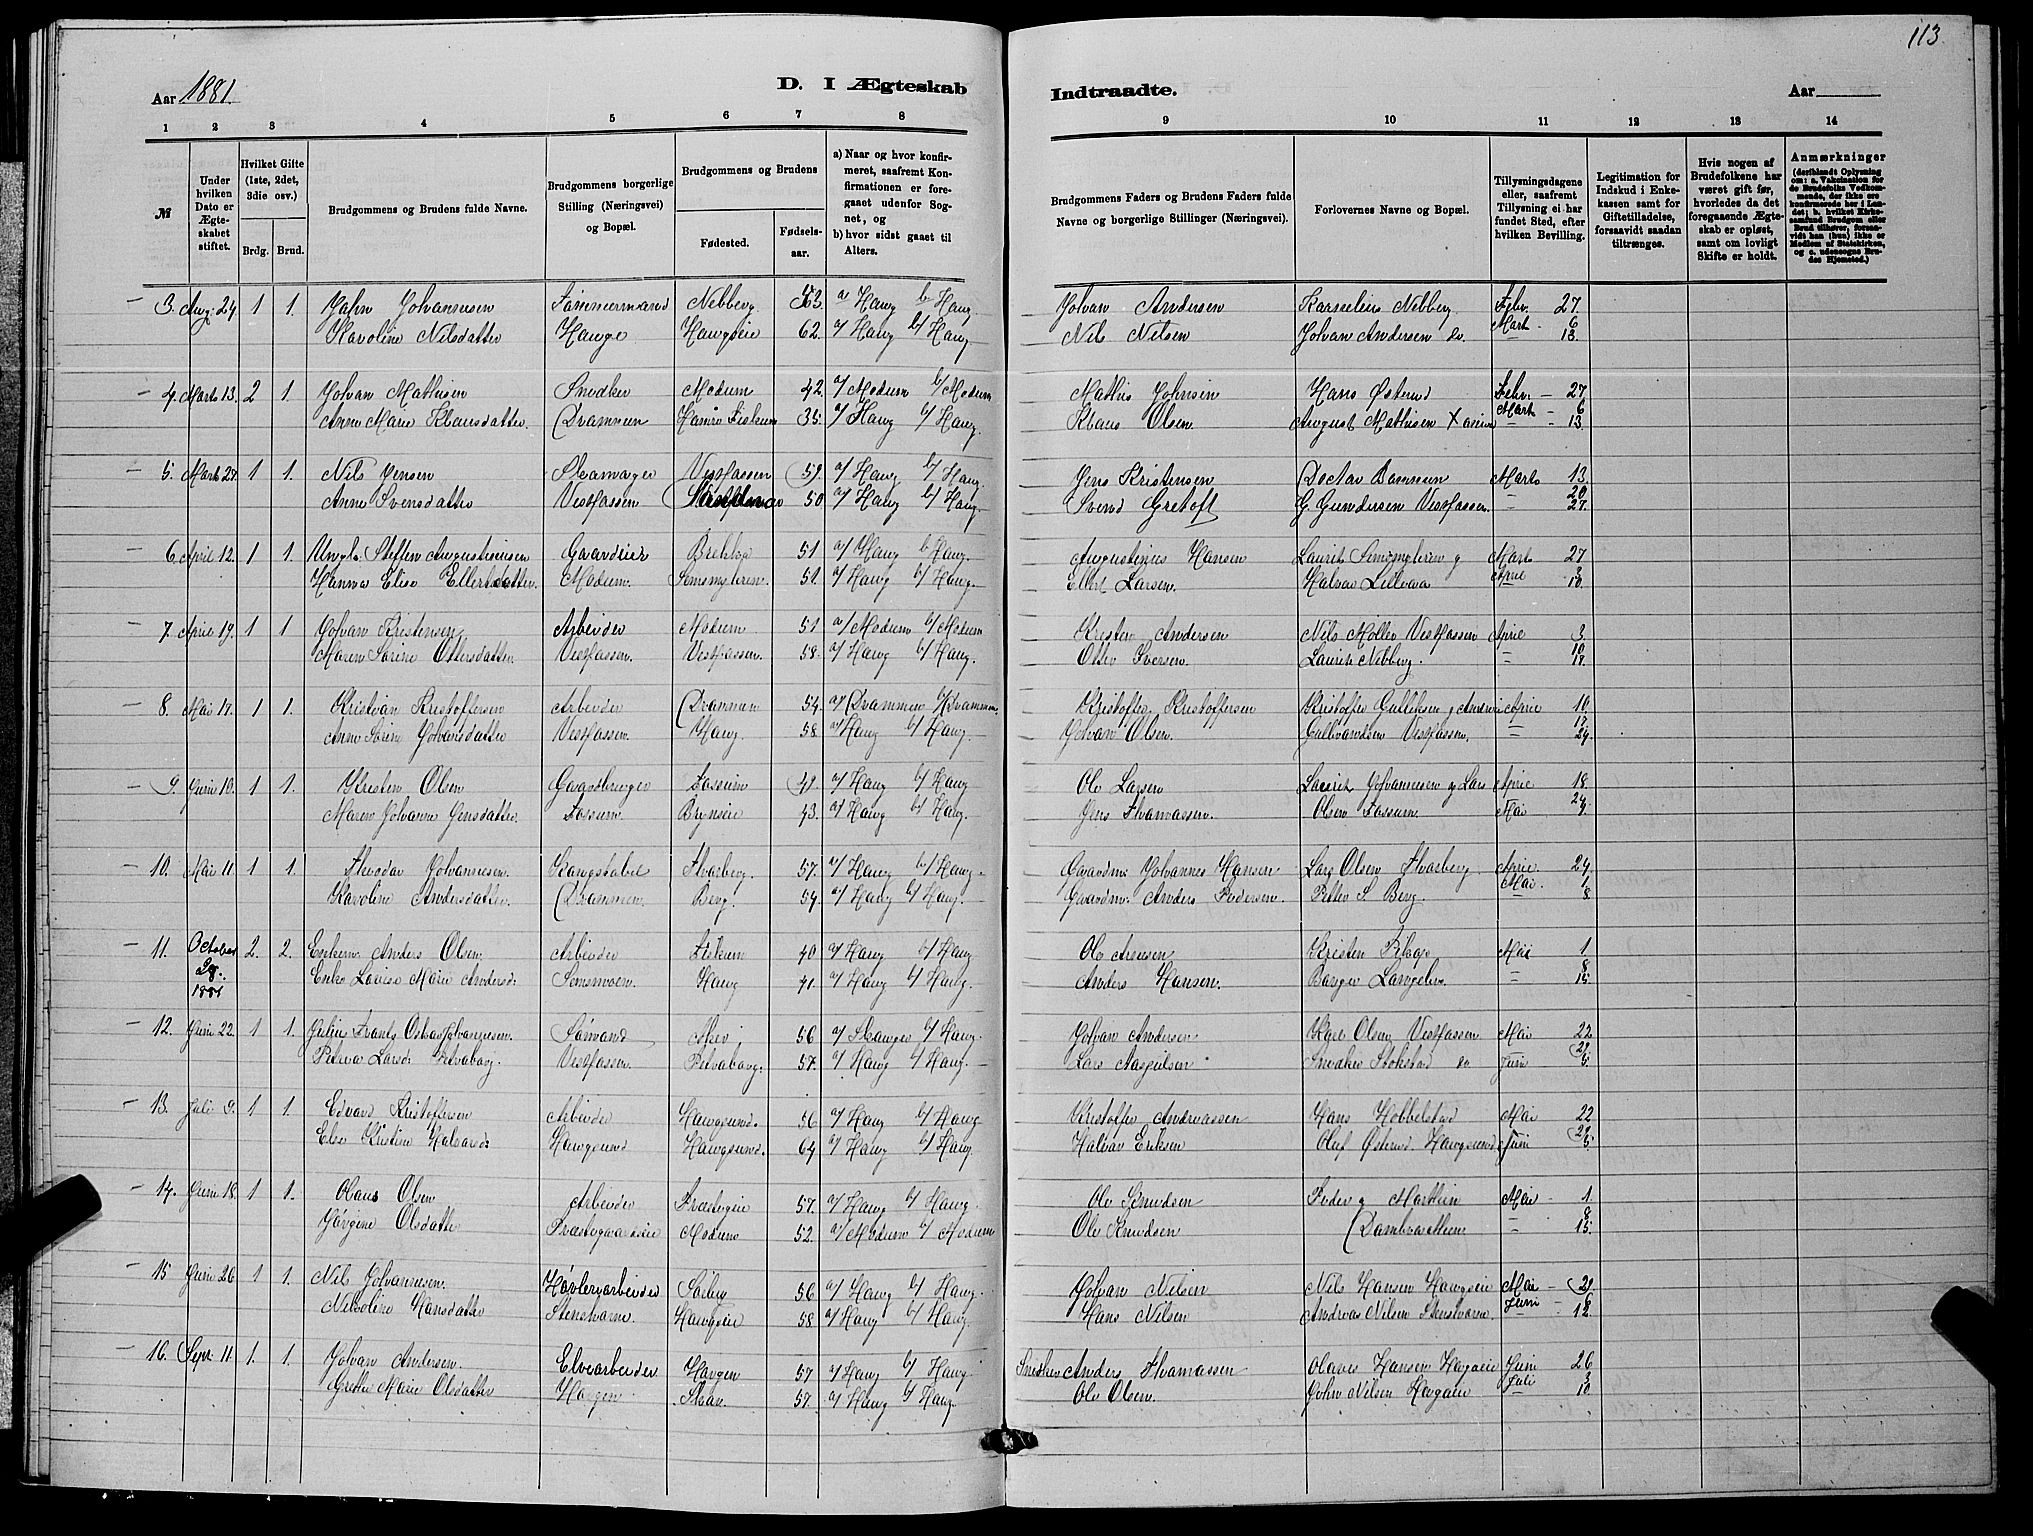 113
Aar 1881.
D. I Ægteskab Indtraadte.
Aar
1 2 3 4 5 6 7 8 9 10 11 12 13 14
№
Under hvilken Dato er Ægteskabet stiftet.
Hvilket Gifte (1ste, 2det, 3die osv.)
Brdg. Brud.
Brudgommens og Brudens fulde Navne.
Brudgommens borgerlige Stilling (Næringsvei) og Bopæl.
Brudgommens og Brudens
Fødested.
Fødselsaar.
a) Naar og hvor konfirmeret, saafremt Konfirmationen er foregaaet udenfor Sognet, og
b) hvor sidst gaaet til Alters.
Brudgommens Faders og Brudens Faders fulde Navne og borgerlige Stillinger (Næringsvei).
Forlovernes Navne og Bopæl.
Tillysningsdagene eller, saafremt Tillysning ei har fundet Sted, efter hvilken Bevilling.
Legitimation for Indskud i Enkekassen samt for Giftetilladelse, forsaavidt saadan tiltrænges.
Hvis nogen af Brudefolkene har været gift før, hvorledes da det foregaaende Ægteskab er opløst, samt om lovligt Skifte er holdt.
Anmærkninger (deriblandt Oplysning om: a. Vakcination for de Brudefolks Vedkommende, der ikke ere konfirmerede her i Landet; b. hvilket Kirkesamfund Brudgom eller Brud tilhører, forsaavidt han (hun) ikke er Medlem af Statskirken, og c. udensogns Brudes Hjemsted.)
3. 24 1 1. Johansen Tømmermand Nebberg 53. a/ Haug b/ Haug. Johan Andersen Nebberg Febr. 27
Karoline Nilsdatter Hauge Haugseie 62. a/ Haug b/ Haug Nils Nilsen Johan Andersen do. Mart - 6
" 13.
4. Marts 13. 2 1. Johan Mathisen Snedker Modum 42. a/ Modum b/ Modum Mathis Johnsen Hans Febr - 27
Anne Marie Klausdatter. Drammen Fiskum 35. a/ Haug b/ Haug. Klaus Olsen. August Mathisen Mart - 6
" - 13
5. Marts 27. 1 1. Nils Jensen Skomager Vestfossen 59. a/ Haug b/ Haug. Jens Kristensen Marts 13.
Anne Svensdatter Vestfossen 50 a/ Haug b/ Haug. Svend G. Gundersen Vestfossen. " 20
27.
6. April 12. 1 1. Ungk. Steffen Augustinusen Gaardeier 51 a/ Haug b/ Haug. Augustinus Hansen Laurits Semsmyhren og Marts 27
Hanna Elise Ellertsdatter. Modum. Semsmyhren. 51. a/ Haug b/ Haug. Ellert Larsen. Halvor April 3
" 10.
7. April 19. 1 1 Johan Kristensen Arbeider Modum 51 a/ Modum b/ Modum Kristen Andersen Nils Moller Vestfossen April 3.
Maren Sørine Ottersdatter. Vestfossen. Vestfossen. 58. a/ Haug b/ Haug. Otter Iversen. Laurits Nebberg. " 10
18.
8. Mai 17. 1 1. Kristian Kristoffersen Arbeider Drammen 54. a/ Drammen b/ Drammen. Kristoffer Kristoffersen Kristoffer Gulliksen og April 10
Anne Sørine Johansdatter Vestfossen. Haug. 58. a/ Haug b/ Haug. Johan Olsen. Vestfossen. " 17
24.
9. Juni 10. 1 1. Kristen Olsen Gaardbruger Fossum 49. a/ Haug b/ Haug Ole Larsen Laurits Johannesen og Lars April 18.
Maren Johanne Jensdatter. Fossum. Brynseie 43. a/ Haug b/ Haug. Jens Thomassen. Olsen Fossum. 24.
Mai 7.
10. Mai 11. 1 1. Theodor Johannesen. Kongstabel Thorberg. 57. a/ Haug b/ Haug. Gaardm. Johannes Hansen Lars Olsen Thorberg. April 24
Karoline Andersdatter. Drammen. Berg. 54. a/ Haug b/ Haug. Gaardm. Anders Pedersen. Petter S. Berg. Mai. 1
" 8.
11. October 28. 1881 2. 2. Enkem. Anders Olsen. Arbeider Fiskum 40 a/ Haug b/ Haug. Ole Kristen Mai 1
Enke Lovise Marie Andersd: Semsmoen. Haug 41. a/ Haug b/ Haug. Anders Hansen. " 8
15.
12. Juni 22. 1 1. Frants Oskar Johannesen. Sømand 56 a/ b/ Haug. Johan Andersen Karl Olsen Vestfossen Mai 22
Petrea Larsd: Vestfossen. 57. a/ Haug b/ Haug. Lars Snedker Stokstad do Juni 29
5.
13. Juli 9. 1 1. Edvard Kristoffersen Arbeider Haugsund. 56 a/ Haug b/ Haug Kristoffer Andreassen Hans Hobbelstad Mai 22
Else Kristine Halvorsd: Haugsund Haugsund. 64 a/ Haug b/ Haug. Halvor Eriksen Oluf Haugsund. Juni 29
5.
14. Juni 18. 1 1. Olaus Olsen Arbeider Præstegeie 57. a/ Haug b/ Haug. Ole Knudsen Peder og Marthin Mai - 1
Jørgine Olsdatter Modum 52. a/ Modum b/ Modum Ole Knudsen " - 8
15.
15 Juni 26 1 1. Nils Johannesen. Høvleriarbeider Solberg 56 a/ Haug b/ Haug. Johan Nilsen Nils Hansen Haugseie Mai - 29
Nilsoline Hansdatter Haugseie 58 a/ Haug b/ Haug. Hans Nilsen Andreas Nilsen Juni 6
12
16. Sept. 11. 1. 1. Johan Andersen. Elvearbeider Haugen 57 a/ Haug b/ Haug. Anders Thomassen Olaves Hansen Juni 26
Grethe Marie Olsdatter Haugen Skaar. 57. a/ Haug b/ Haug. Ole Olsen. John Nilsen Juli 3
" 10